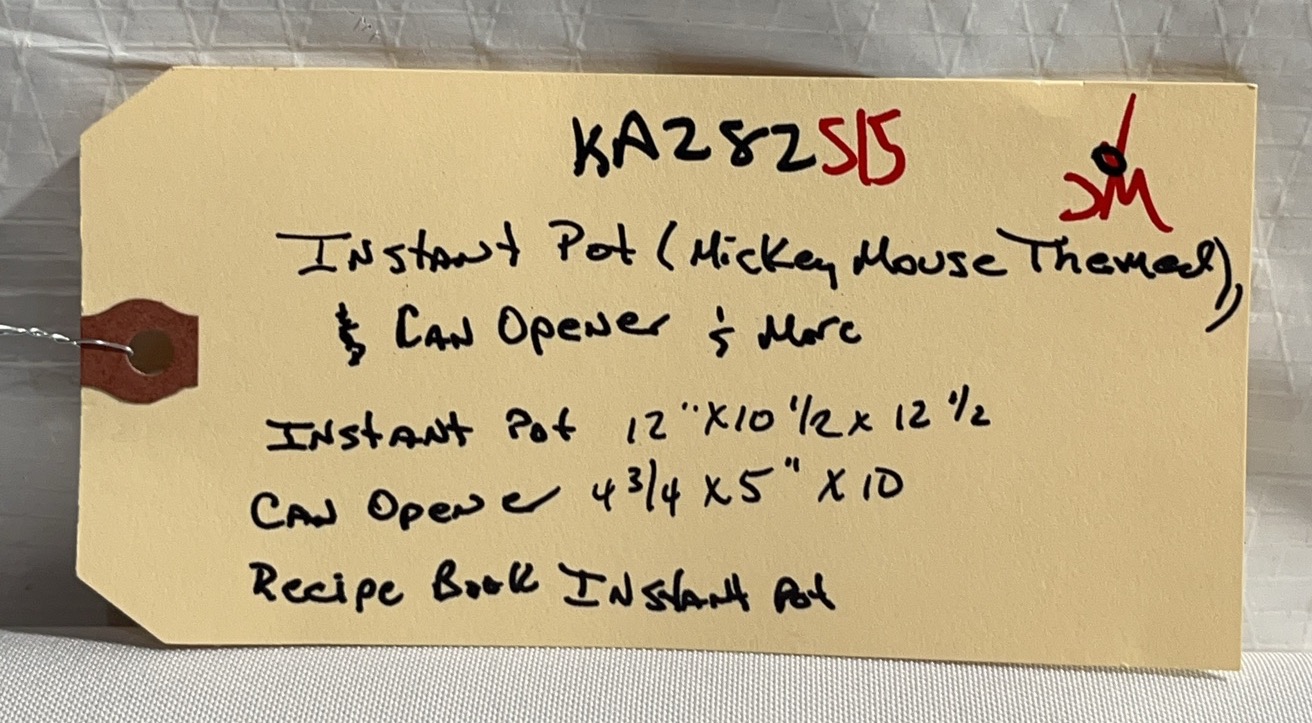 KA282S15 JM
Instant Pot (Mickey Mouse Themed),
& Can Opener & More
Instant Pot 12" x 10 1/2 x 12 1/2
Can Opener 4 3/4 x 5" x 10
Recipe Book Instant Pot